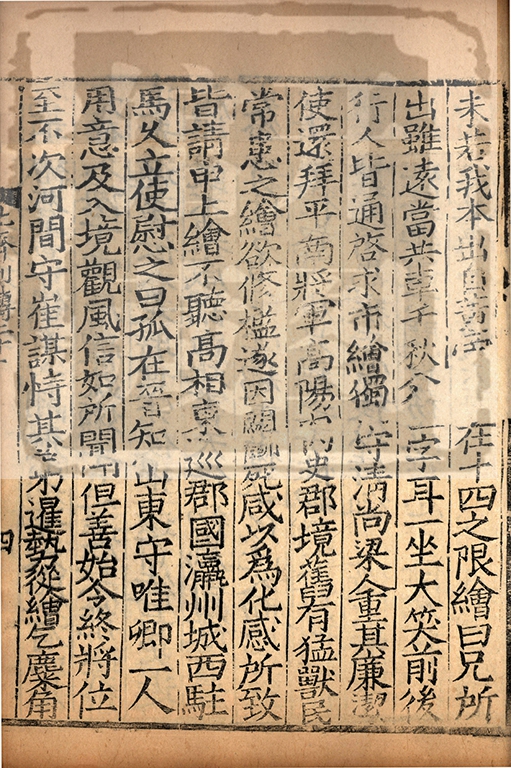 未若我本出自黃帝在十四之限繪曰兄所
出雖遠當共車千秋分一字耳一坐大笑前後
行人皆通啓求市繪獨守清尚梁人重其廉潔
使還拜平南將軍高陽內史郡境舊有猛獸民
常患之繪欲修檻遂因鬭斃咸以爲化感所致
皆請申上繪不聽高相東巡郡國瀛州城西駐
馬久立使慰之曰孤在晉知山東守唯卿一人
用意及入境觀風信如所聞但善始令終將位
至不次河間守崔謀恃其弟暹勢從繪乞麋角
北齊列傳二十一 四